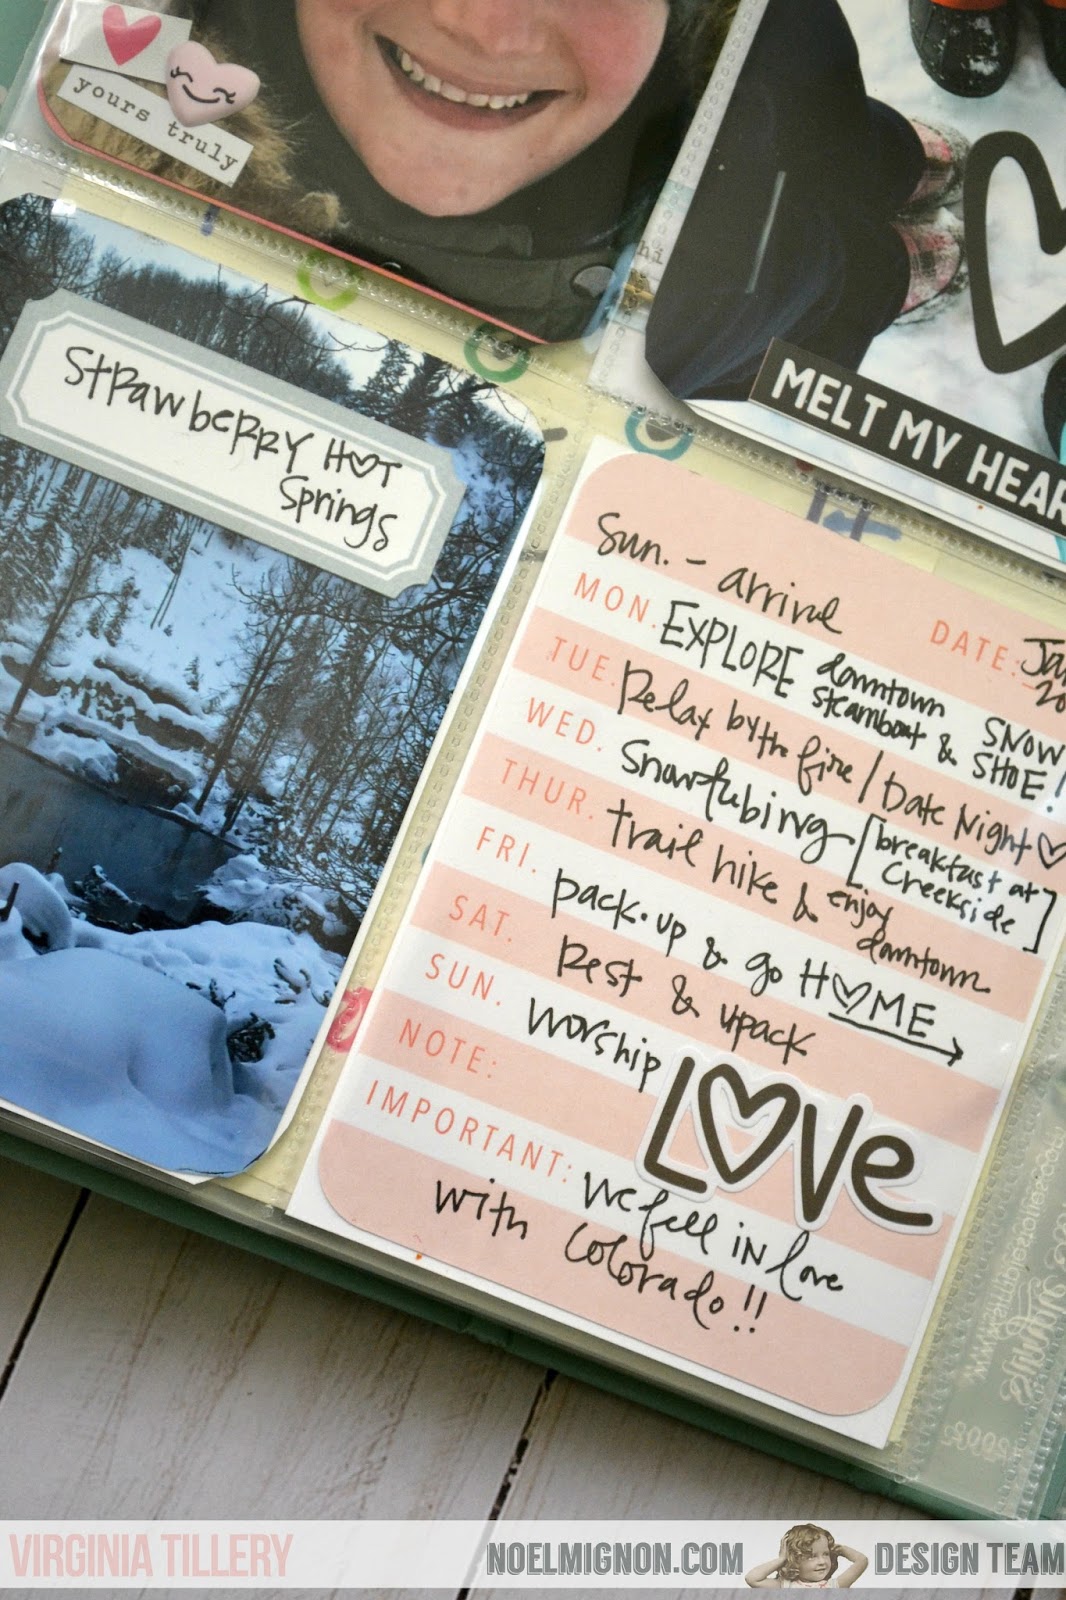 yours truly
hi
MELT MY HEAR
Strawberry Hot
Springs
Sun. - arrival
DATE: Jan
20
MON. EXPLORE downtown steamboat & SNOW SHOE!
TUE. Relax by the fire / Date Night
WED. Snowtubing [breakfast at Creekside]
THUR. trail hike & enjoy downtown
FRI. pack-up & go HOME
SAT. Rest & upack
SUN. Worship
NOTE:
LOVe
IMPORTANT: We fell in love
with Colorado!!
VIRGINIA TILLERY
NOELMIGNON.COM DESIGN TEAM